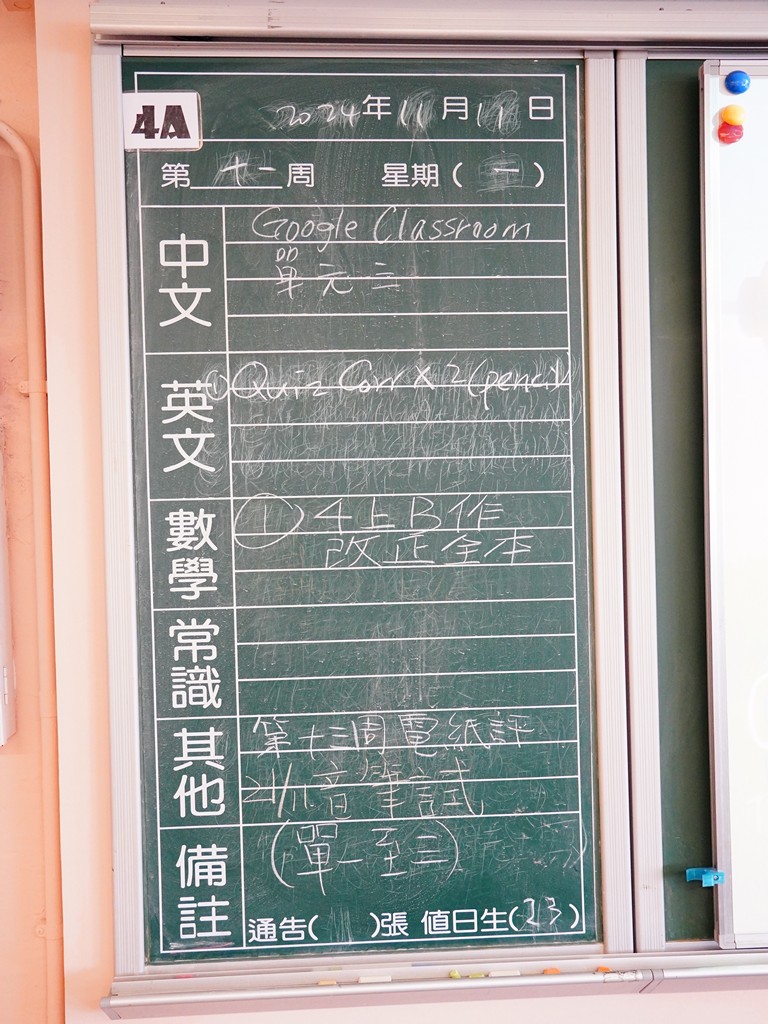 4A
2024年11月11日
第十一周 星期(一)
中文
Google Classroom
單元三
英文
① Quiz Corr x 2 (pencil)
數學
① 4上B作
改正全本
常識
其他
第十三周電紙評
21/11音筆試
備註
(單一至三)
通告( )張 值日生(23)